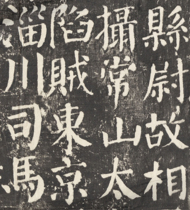 縣尉故相
攝常山太
陷賊東京
淄川司馬